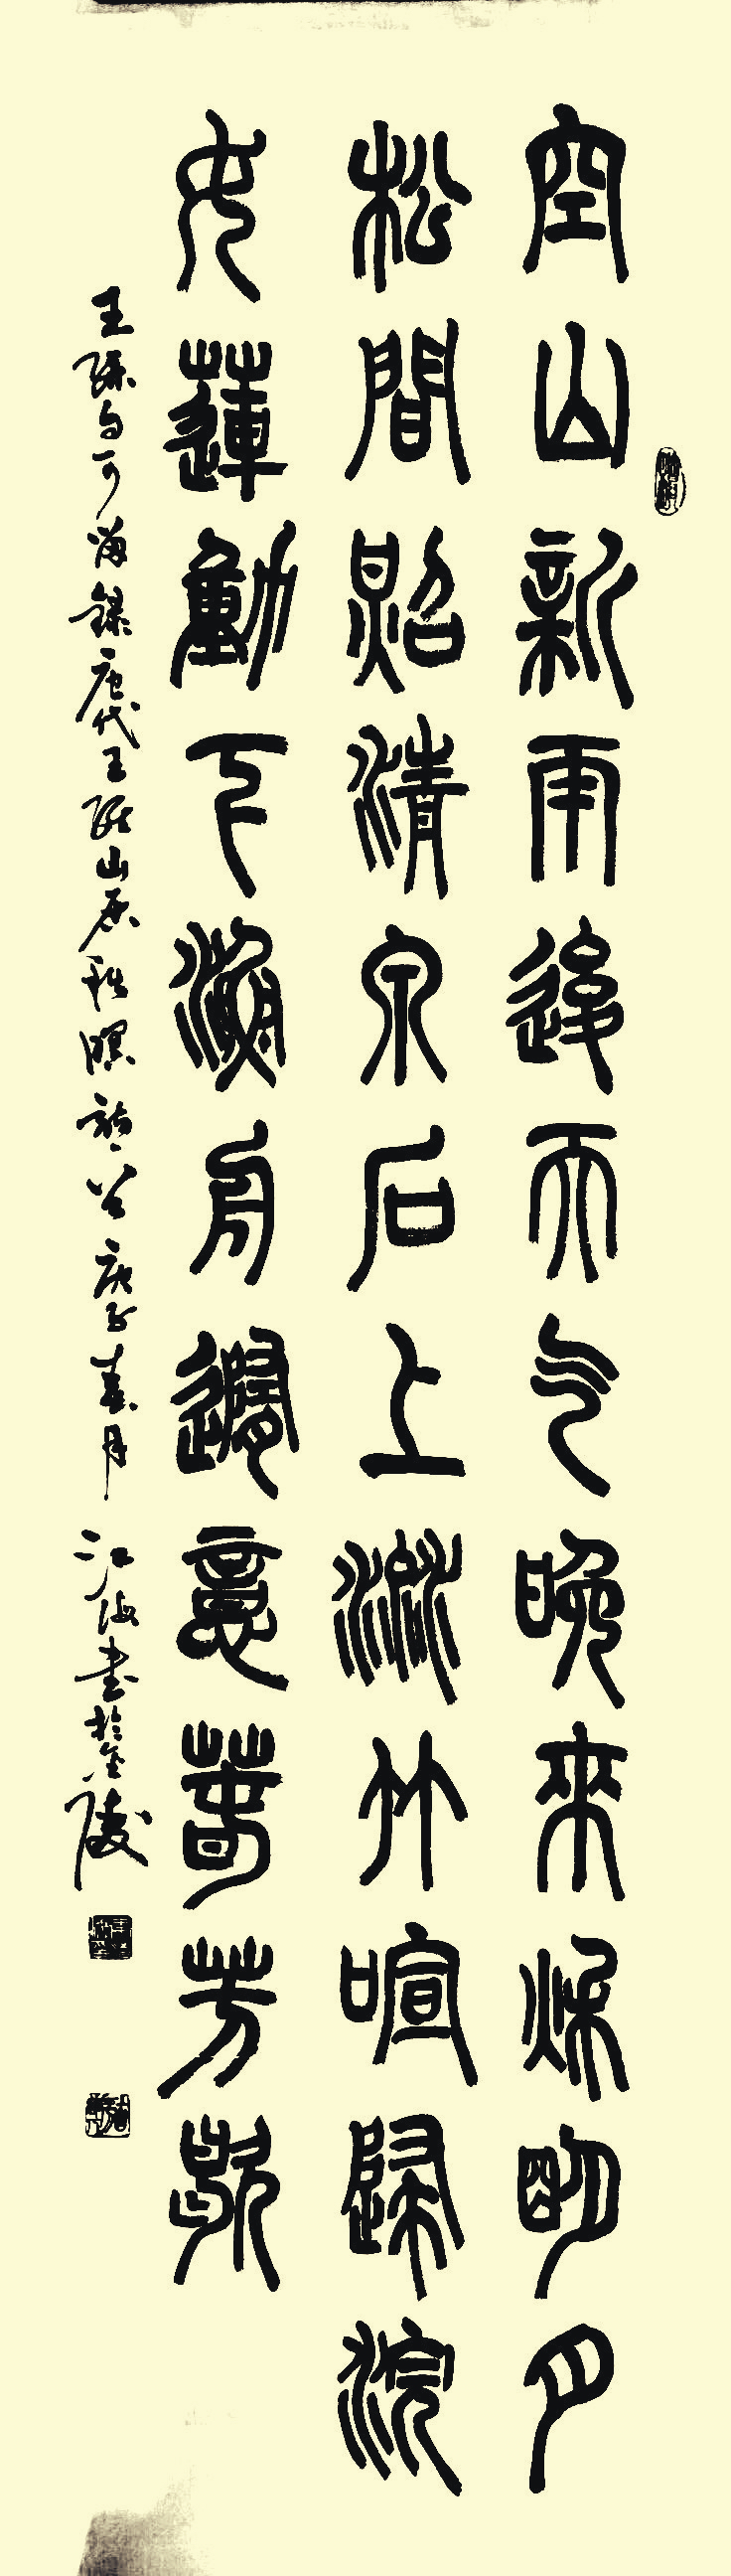 空山新雨後天气晚來秋明月
松間照清泉石上流竹喧歸浣
女蓮動下漁舟隨意春芳歇
王孫自可留錄唐代王維山居秋暝詩一首庚子春月江海书於金陵